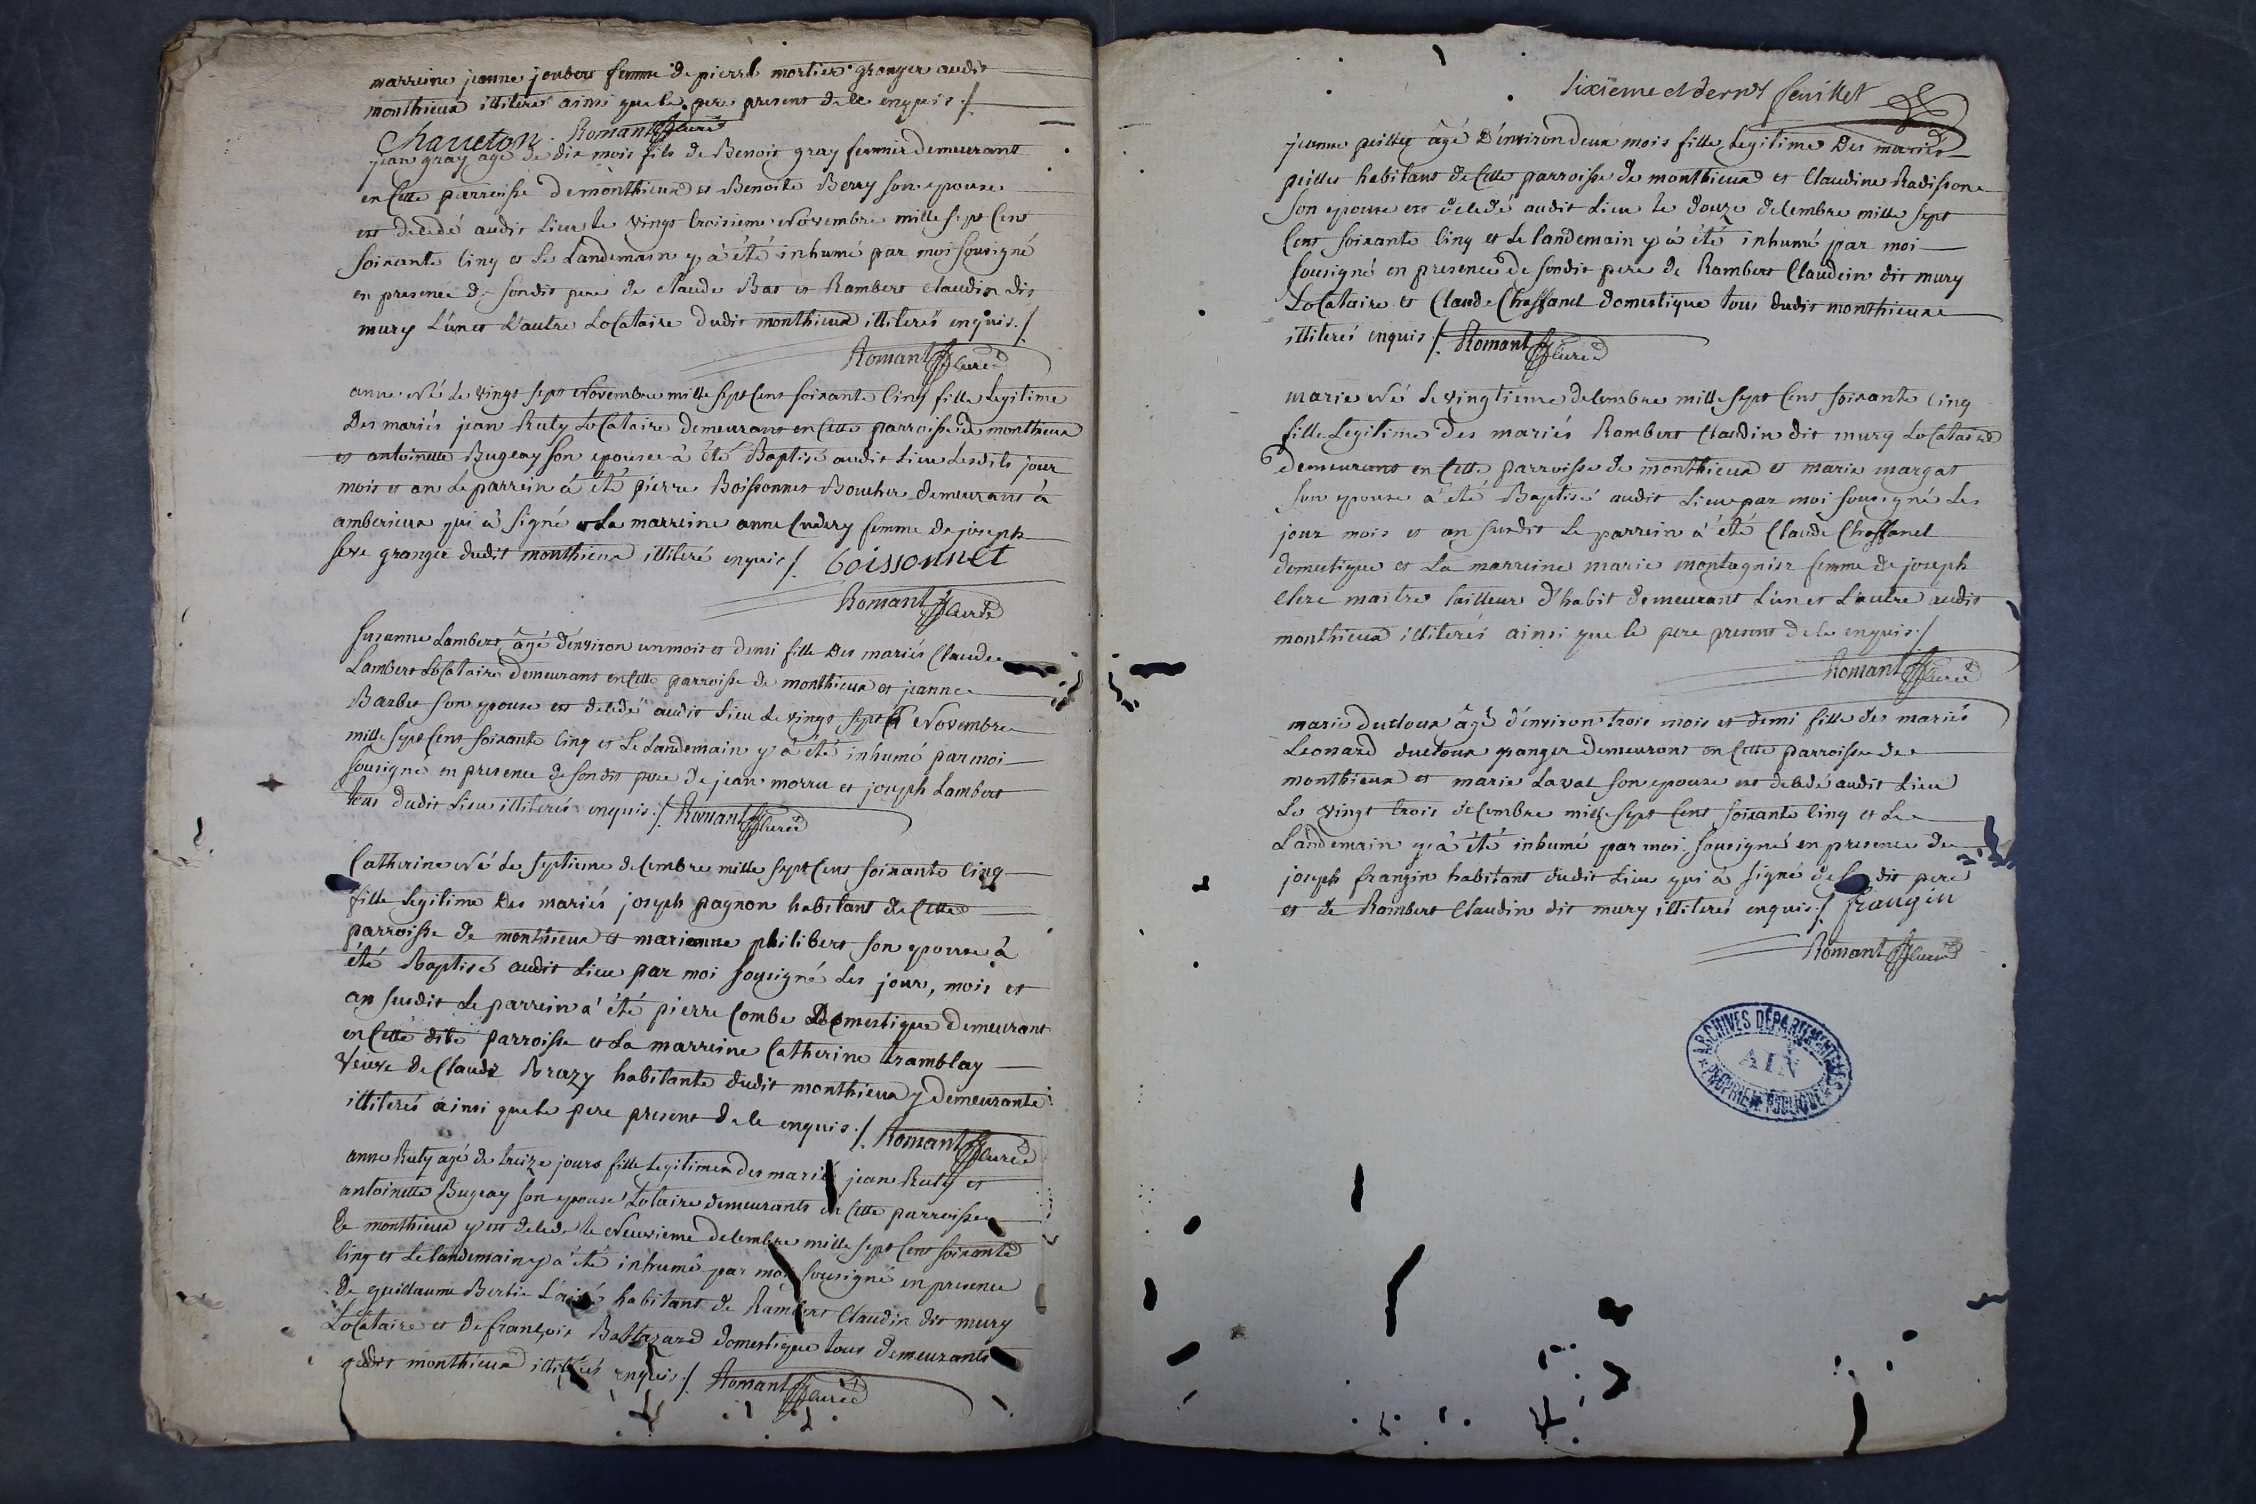 marreine jeanne joubert femme de pierre mortier granger audit
monthieux illiteré ainsi que le pere present de ce enquis ./.
Chaneton . Romant Curé
jean gray agé de dix mois fils de Benoit gray fermier demeurant
en Cette parroisse de monthieux et Benoite Berry son epouse
est decedé audit Lieu le vingt troisieme Novembre mille sept Cent
soixante Cinq et Le Landemain y à été inhumé par moi sousigné
en presence de sondit pere de claude Bas et Rambert claudin dit
mury L'un et L'autre LoCataire dudit monthieux illiterés enquis ./.
Romant Curé
anne Né Le vingt sept Novembre mille sept Cent soixante Cinq fille Legitime
Des mariés jean Ruty LoCataire demeurant en Cette parroisse de monthieux
et antoinette Bugeay son epouse à été Baptisé audit Lieu Lesdits jour
mois et an Le parrein à été pierre Boissonnet Boucher demeurant à
amberieux qui à signé et La marreine anne Cudery femme de joseph
seve granger dudit monthieux illiteré enquis ./. boissonnet
Romant Curé
susanne Lambert âgé d'environ un mois et demi fille Des mariés Claude
Lambert LoCataire demeurant en Cette parroisse de monthieux et jeanne
Barbet son epouse est decedé audit Lieu Le vingt sept Novembre
mille sept Cent soixante Cinq et Le Landemain y à été inhumé par moi
sousigné en presence de sondit pere de jean morru et joseph Lambert
tous dudit Lieu illiterés enquis ./. Romant Curé
Catherine Né Le septieme decembre mille sept Cent soixante Cinq
fille Legitime Des mariés joseph pagnon habitant de Cette
parroisse de monthieux et marianne philibert son epouse à
été Baptisé audit Lieu par moi sousigné Les jour, mois et
an susdit Le parrein à été pierre Combe Domestique demeurant
en Cette dite parroisse et La marreine Catherine tramblay
veuve de Claude Brazy habitante dudit monthieux y demeurante
illiterés ainsi que le pere present de ce enquis ./. Romant Curé
anne Ruty agé de treize jours fille Legitime des mariés jean Ruty et
antoinette Bugeay son epouse LoCataire demeurants en Cette parroisse
de monthieux y est decedé le Neuvieme decembre mille sept Cent soixante
Cinq et Le landemain y à été inhumé par moi sousigné en presence
de guillaume Bertie L'ainé habitant de Rambert Claudin dit mury
LoCataire et de françois Baltazard domestique tous demeurants
audit monthieux illiterés enquis ./. Romant Curé
sixieme et dernr feuillet
jeanne peillet âgé D'environ deux mois fille Legitime Des mariés
peillet habitant de Cette parroisse de monthieux et Claudine Radisson
son epouse est decedé audit Lieu le douze decembre mille sept
Cent soixante Cinq et Le landemain y à été inhumé par moi
sousigné en presence de sondit pere de Rambert Claudin dit mury
LoCataire et Claude Chaffanel domestique tous dudit monthieux
illiterés enquis ./. Romant Curé
marie Né Le vingtieme decembre mille sept Cent soixante Cinq
fille Legitime Des mariés Rambert Claudin dit mury LoCataire
demeurant en Cette parroisse de monthieux et marie margat
son epouse à été Baptisé audit Lieu par moi sousigné Les
jour mois et an susdit Le parrein à été Claude Chaffanel
domestique et La marreine marie montagnier femme de joseph
Clerc maitre tailleur d'habit demeurant L'un et L'autre audit
monthieux illiterés ainsi que le pere present de ce enquis ./.
Romant Curé
marie ducloux âgé d'environ trois mois et demi fille des mariés
Leonard ducloux granger demeurant en Cette parroisse de
monthieux et marie Laval son epouse est decedé audit Lieu
Le vingt trois decembre mille sept Cent soixante Cinq et Le
Landemain y à été inhumé par moi sousigné en presence de
joseph frangin habitant dudit Lieu qui à signé de sondit pere
et de Rambert Claudin dit mury illiterés enquis ./. frangin
Romant Curé
ARCHIVES DÉPARTEMENTALES
AIN
PROPRIÉTÉ PUBLIQUE